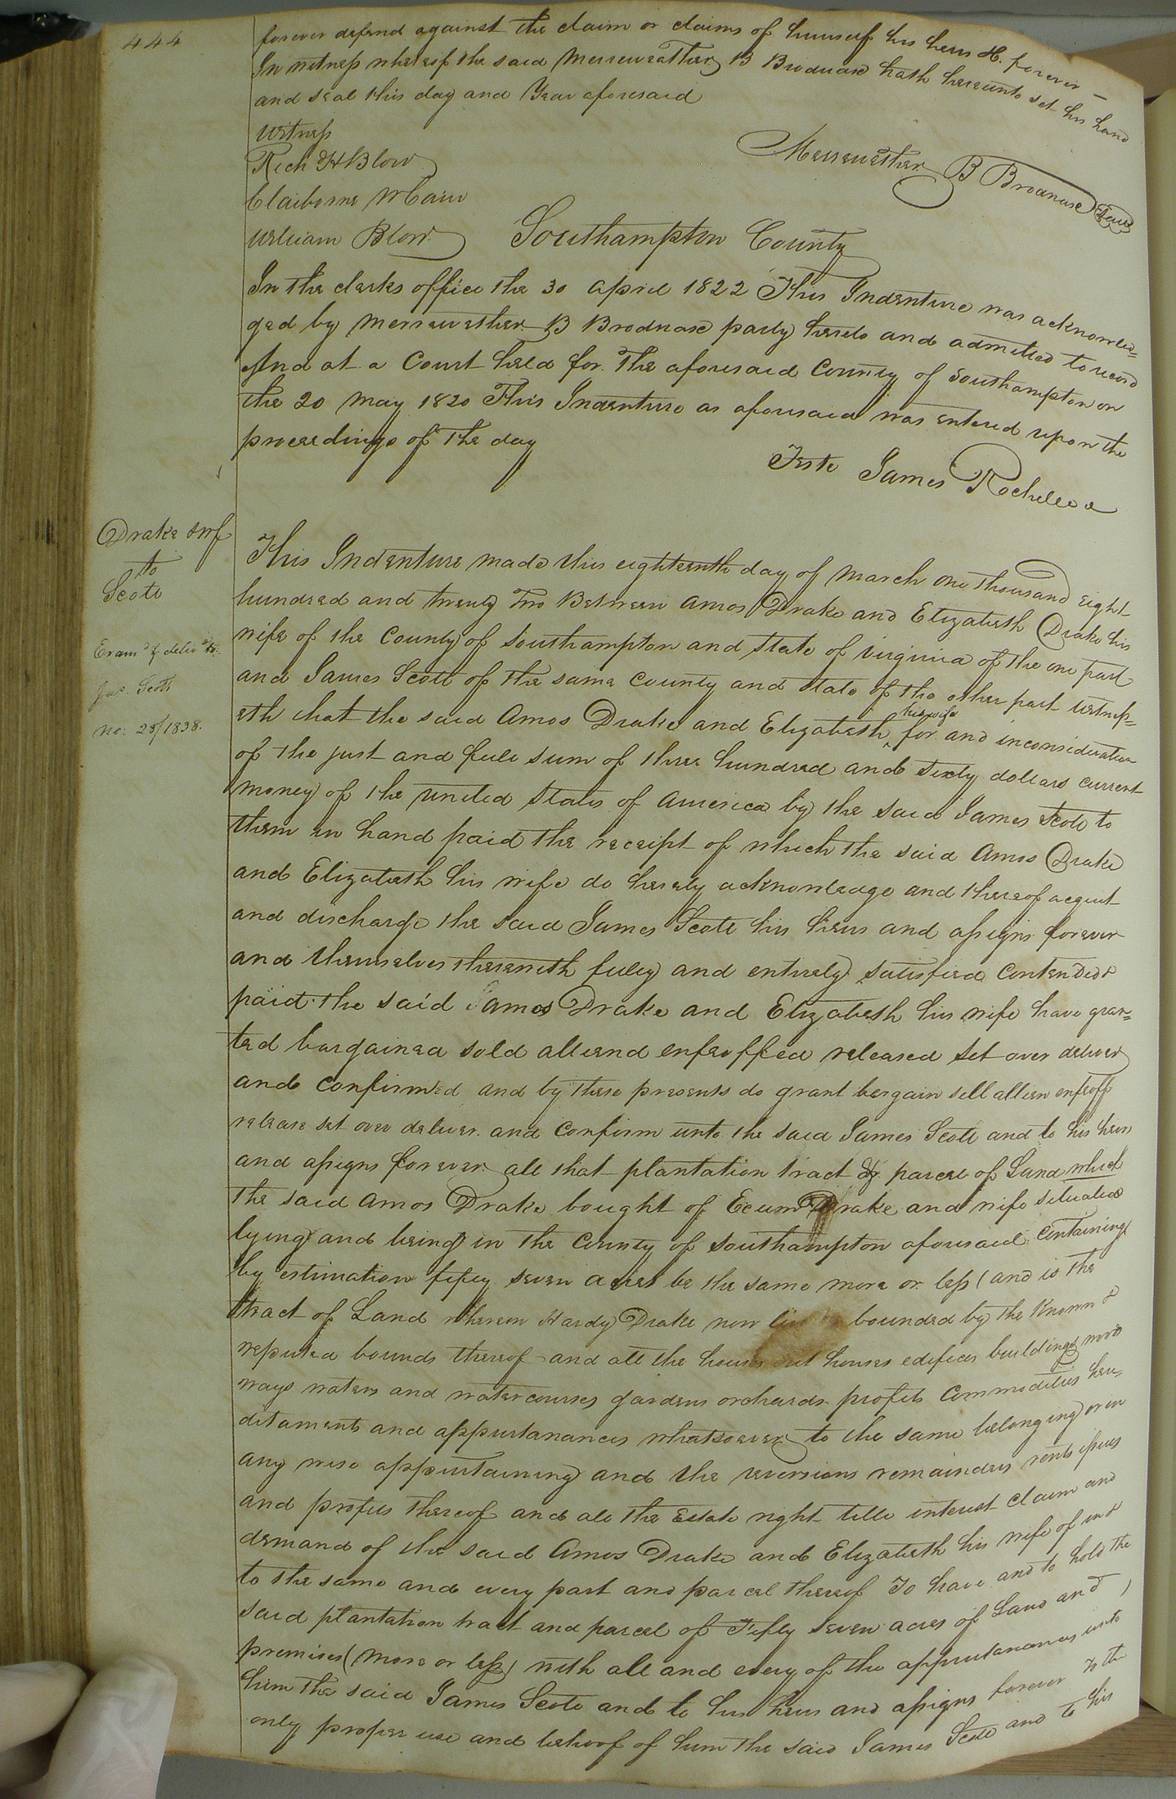 444
forever defend against the claim or claims of himself his heirs &c. forever –
In witness whereof the said Merreweather B Brodnax hath hereunto set his hand
and seal this day and Year aforesaid
Witness
Rich H Blow
Merreweather B Brodnax Seal
Claiborne
William Blow
Southampton County
In the clerks office the 30 april 1822 This Indenture was acknowled=
ged by Merreweather B Brodnax party hereto and admitted to record
And at a Court held for the aforesaid County of Southampton on
the 20 May 1820 This Indenture as aforesaid was entered upon the
proceedings of the day
Teste James Rochelle
Drake & wf
to
Scott
Exam'd & deliv'd to
Jas. Scott
28/1838.
This Indenture made this eighteenth day of march one thousand eight
hundred and twenty two Between Amos Drake and Elizabeth Drake his
wife of the County of Southampton and State of virginia of the one part
and James Scott of the same county and State of the other part Witness=
eth that the said Amos Drake and Elizabeth his wife for and inconsideration
of the just and full sum of three hundred and sixty dollars current
money of the united States of America by the said James Scott to
them in hand paid the receipt of which the said Amos Drake
and Elizabeth his wife do hereby acknowledge and thereof acquit
and discharge the said James Scott his heirs and assigns forever
and themselves therewith fully and entirely satisfied contended &
paid the said Amos Drake and Elizabeth his wife have gran=
ted bargained sold aliend enfeoffed released set over deliver
and confirmed and by these presents do grant bergain sell alien enfeoff
release set over deliver and confirm unto the said James Scott and to his heirs
and assigns forever all that plantation tract & parcel of Land which
the said Amos Drake bought of Drake and wife situated
lying and being in the County of Southampton aforesaid containing
by estimation fifty seven acres be the same more or less (and is the
tract of Land whereon Hardy Drake now bounded by the known &
reputed bounds thereof and all the houses out houses edifices buildings
ways waters and watercourses gardens orchards profits commodities here,
ditaments and appurtanances whatsoever to the same belonging or in
any wise appurtaining and the reversions remainders rents issues
and profits thereof and all the Estate right title interest claim and
demand of the said Amos Drake and Elizabeth his wife of in &
to the same and every part and parcel thereof To have and to hold the
said plantation tract and parcel of Fifty seven acres of Land and
premises (more or less) with all and every of the appurtanances unto
him the said James Scott and to his heirs and assigns forever to the
only proper use and behoof of him the said James Scott and to his